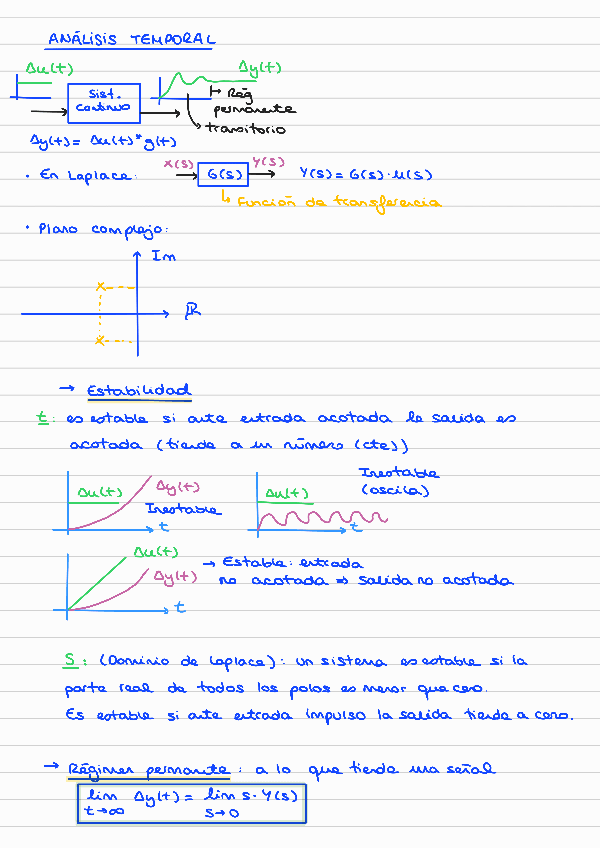 ANÁLISIS TEMPORAL
Δu(t)
Δy(t)
Sist.
continuo
Rég
permanente
transitorio
Δy(t) = Δu(t) * g(t)
• En Laplace:
X(S)
G(S)
Y(S)
Y(S) = G(S)·U(S)
↳ Función de transferencia
• Plano complejo:
Im
ℝ
→ Estabilidad
t: es estable si ante entrada acotada la salida es
acotada (tiende a un número (cte))
Δu(t)
Δy(t)
Inestable
t
Δu(t)
Inestable
(oscila)
t
Δu(t)
Δy(t)
t
→ Estable: entrada
no acotada ⇒ salida no acotada
S: (Dominio de Laplace): un sistema es estable si la
parte real de todos los polos es menor que cero.
Es estable si ante entrada impulso la salida tiende a cero.
→ Régimen permanente: a lo que tiende una señal
lim Δy(t) = lim s·Y(s)
t→∞ s→0